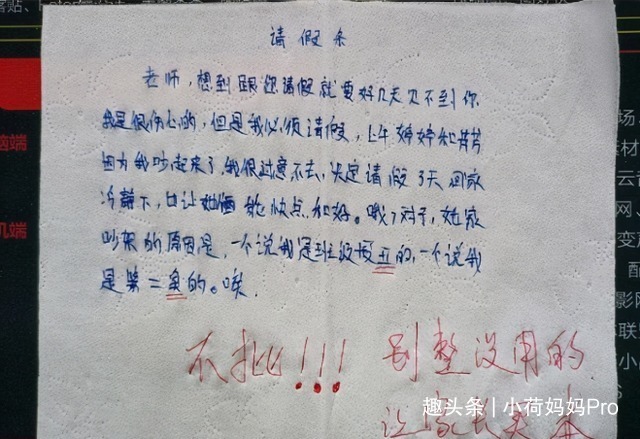 请假条
老师，想到跟您请假就要好几天见不到你
我是很伤心的，但是我必须请假，上午婷婷和芳芳
因为我吵起来了，我很过意不去，决定请假3天回家
冷静下，也让她俩能快点和好。哦，对了，她们
吵架的原因是，一个说我是班级最丑的，一个说我
是第二丑的。唉。
不批!!! 别整没用的
让家长来
趣头条 | 小荷妈妈Pro
脑端
机端